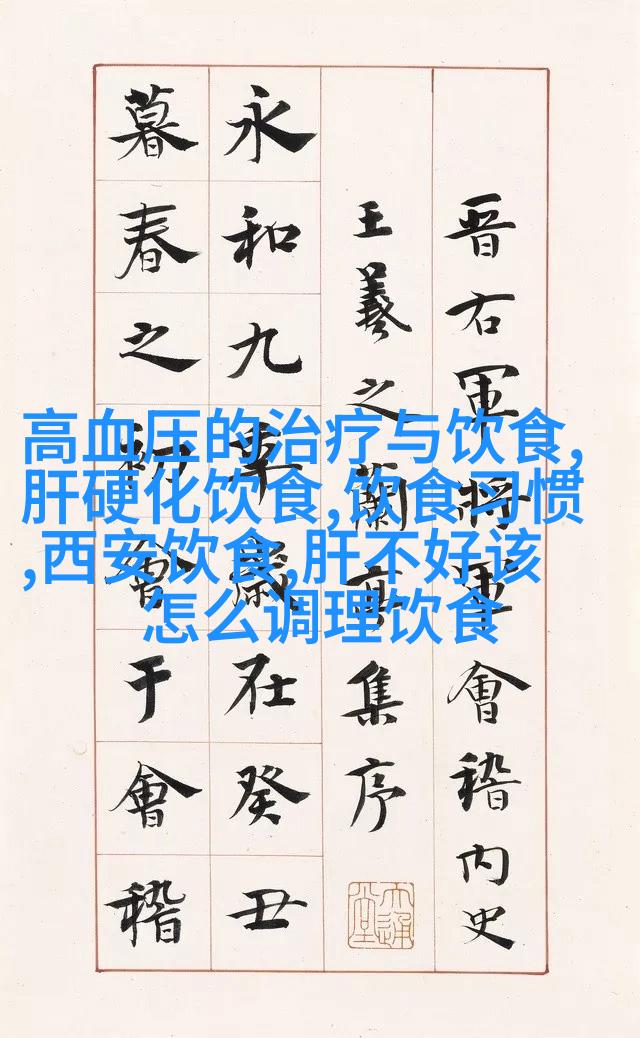 高血压的治疗与饮食,
肝硬化饮食,饮食习惯
,西安饮食,肝不好该
怎么调理饮食
晋右軍将軍會稽内史
王羲之蘭亭集序
永和九年歲在癸丑
暮春之初會于會稽